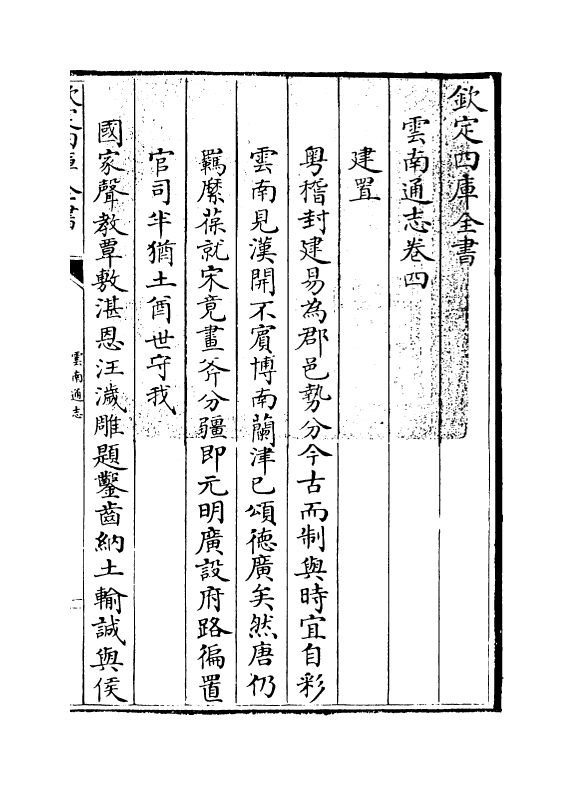 欽定四庫全書
雲南通志卷四
建置
粤稽封建易為郡邑勢分今古而制與時宜自彩
雲南見漢開不賓博南蘭津已頌徳廣矣然唐仍
羈縻葆就宋竟畫斧分疆即元明廣設府路徧置
官司半猶土酋世守我
國家聲教覃敷湛恩汪濊雕題鑿齒納土輸誠與侯
欽定四庫全書
雲南通志